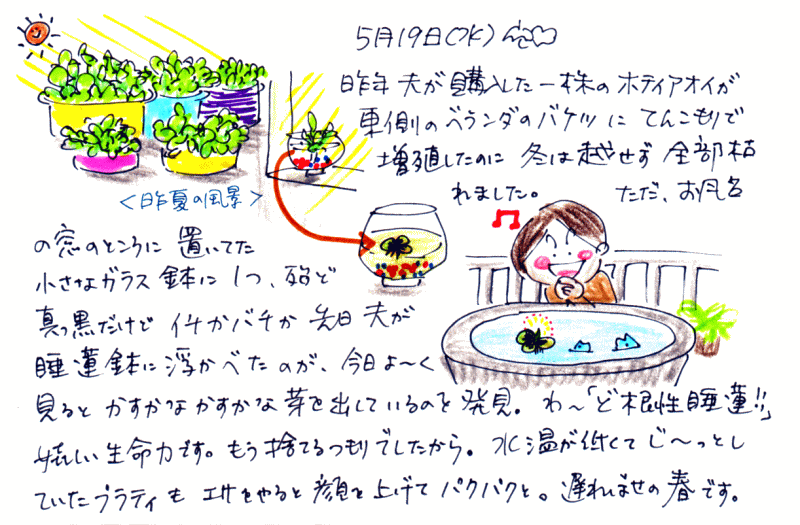 5月19日(水)
昨年 夫が購入した一株のホテイアオイが
東側のベランダのバケツに てんこもりで
増殖したのに 冬は越せず 全部枯
れました。 ただ、お風呂
<昨夏の風景>
の窓のところに 置いてた
小さなガラス鉢に1つ、殆ど
真っ黒だけど イチかバチか 先日 夫が
睡蓮鉢に浮かべたのが、今日よ〜く
見ると かすかなかすかな芽を出しているのを発見。 わ〜「ど根性睡蓮!!」
嬉しい生命力です。もう捨てるつもりでしたから。 水温が低くて じ〜っとし
ていたプラティも エサをやると顔を上げて パクパクと。遅ればせの春です。